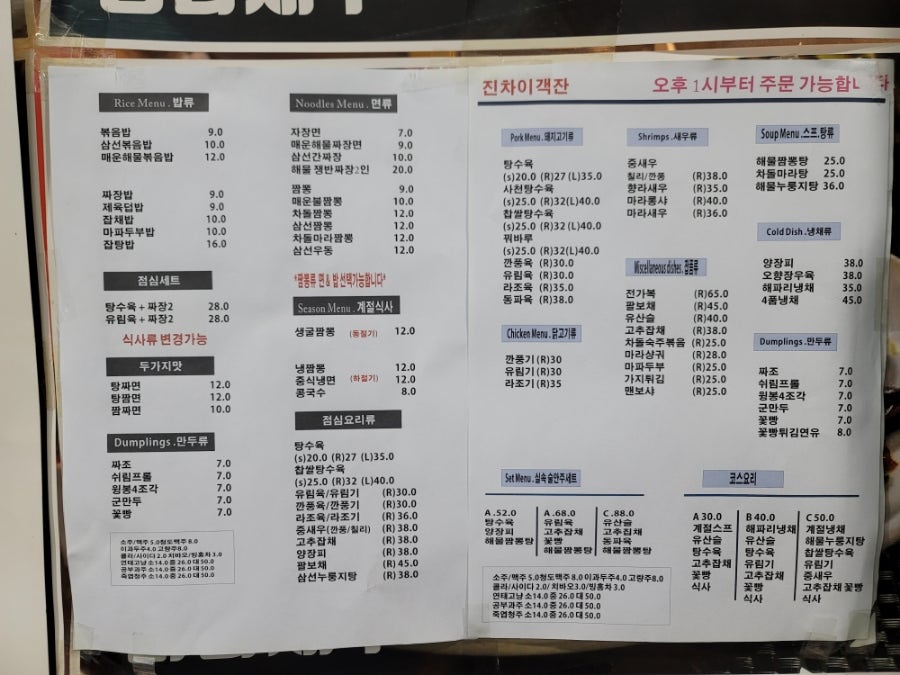 Rice Menu . 밥류
볶음밥 9.0
삼선볶음밥 10.0
매운해물볶음밥 12.0
짜장밥 9.0
제육덥밥 9.0
잡채밥 10.0
마파두부밥 10.0
잡탕밥 16.0
점심세트
탕수육 + 짜장2 28.0
유림육 + 짜장2 28.0
식사류 변경가능
두가지맛
탕짜면 12.0
탕짬면 12.0
짬짜면 10.0
Dumplings . 만두류
짜조 7.0
쉬림프롤 7.0
윙봉4조각 7.0
군만두 7.0
꽃빵 7.0
소주/맥주 5.0청도맥주 8.0
이과두주4.0 고량주8.0
콜라/사이다 2.0 치바오/핑홍차 3.0
연태고냥 소14.0 중 26.0 대 50.0
공부과주 소14.0 중 26.0 대 50.0
죽엽청주 소14.0 중 26.0 대 50.0
Noodles Menu . 면류
자장면 7.0
매운해물짜장면 9.0
삼선간짜장 10.0
해물 쟁반짜장2인 20.0
짬뽕 9.0
매운불짬뽕 10.0
차돌짬뽕 12.0
삼선짬뽕 12.0
차돌마라짬뽕 12.0
삼선우동 12.0
*짬뽕류 면 & 밥 선택가능합니다*
Season Menu . 계절식사
생굴짬뽕 (동절기) 12.0
냉짬뽕 12.0
중식냉면 (하절기) 12.0
콩국수 8.0
점심요리류
탕수육
(s)20.0 (R)27 (L)35.0
찹쌀탕수육
(s)25.0 (R)32 (L)40.0
유림육/유림기 (R)30.0
깐풍육/깐풍기 (R)30.0
라조육/라조기 (R)36.0
중새우(깐풍/칠리) (R)38.0
고추잡채 (R)38.0
양장피 (R)38.0
팔보채 (R)45.0
삼선누룽지탕 (R)38.0
진차이객잔 오후 1시부터 주문 가능합니다
Pork Menu . 돼지고기류
탕수육
(s)20.0 (R)27 (L)35.0
사천탕수육
(s)25.0 (R)32(L)40.0
찹쌀탕수육
(s)25.0 (R)32(L)40.0
꿔바루
(s)25.0 (R)32(L)40.0
깐풍육 (R)30.0
유림육 (R)30.0
라조육 (R)35.0
동파육 (R)38.0
Chicken Menu . 닭고기류
깐풍기 (R)30
유림기 (R)30
라조기 (R)35
Shrimps . 새우류
중새우
칠리/깐풍 (R)38.0
향라새우 (R)35.0
마라롱샤 (R)40.0
마라새우 (R)36.0
Miscellaneous dishes . 일품류
전가복 (R)65.0
팔보채 (R)45.0
유산슬 (R)40.0
고추잡채 (R)38.0
차돌숙주볶음 (R)25.0
마라샹궈 (R)28.0
마파두부 (R)25.0
가지튀김 (R)25.0
맨보샤 (R)25.0
Soup Menu .스프.탕류
해물짬뽕탕 25.0
차돌마라탕 25.0
해물누룽지탕 36.0
Cold Dish . 냉채류
양장피 38.0
오향장우육 38.0
해파리냉채 35.0
4품냉채 45.0
Dumplings . 만두류
짜조 7.0
쉬림프롤 7.0
윙봉4조각 7.0
군만두 7.0
꽃빵 7.0
꽃빵튀김연유 8.0
Set Menu . 실속 술안주세트
A .52.0
탕수육
양장피
해물짬뽕탕
A .68.0
유림육
고추잡채
꽃빵
해물짬뽕탕
C .88.0
유산슬
고추잡채
동파육
해물짬뽕탕
소주/맥주 5.0청도맥주 8.0 이과두주4.0 고량주8.0
콜라/사이다 2.0/ 치바오3.0/핑홍차 3.0
연태고냥 소14.0 중 26.0 대 50.0
공부과주 소14.0 중 26.0 대 50.0
죽엽청주 소14.0 중 26.0 대 50.0
코스요리
A 30.0
계절스프
유산슬
탕수육
고추잡채
꽃빵
식사
B 40.0
해파리냉채
유산슬
탕수육
유림기
고추잡채
꽃빵
식사
C 50.0
계절냉채
해물누룽지탕
찹쌀탕수육
유림기
중새우
고추잡채 꽃빵
식사